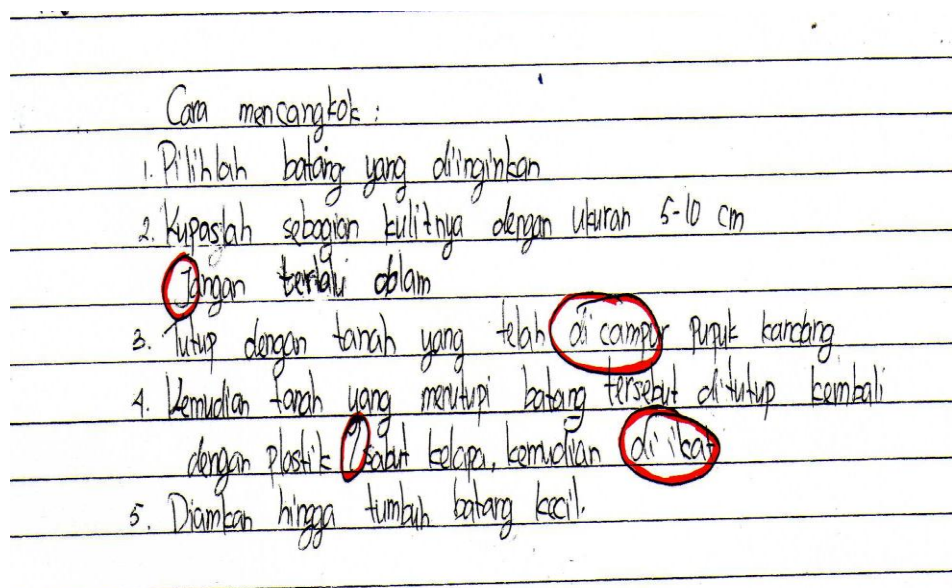 Cara mencangkok :
1. Pilihlah batang yang diinginkan
2. Kupaslah sebagian kulitnya dengan ukuran 5-10 cm
Jangan terlalu dalam
3. Tutup dengan tanah yang telah di campur pupuk kandang
4. Kemudian tanah yang menutupi batang tersebut ditutup kembali
dengan plastik ? sabut kelapa, kemudian di ikat
5. Diamkan hingga tumbuh batang kecil.